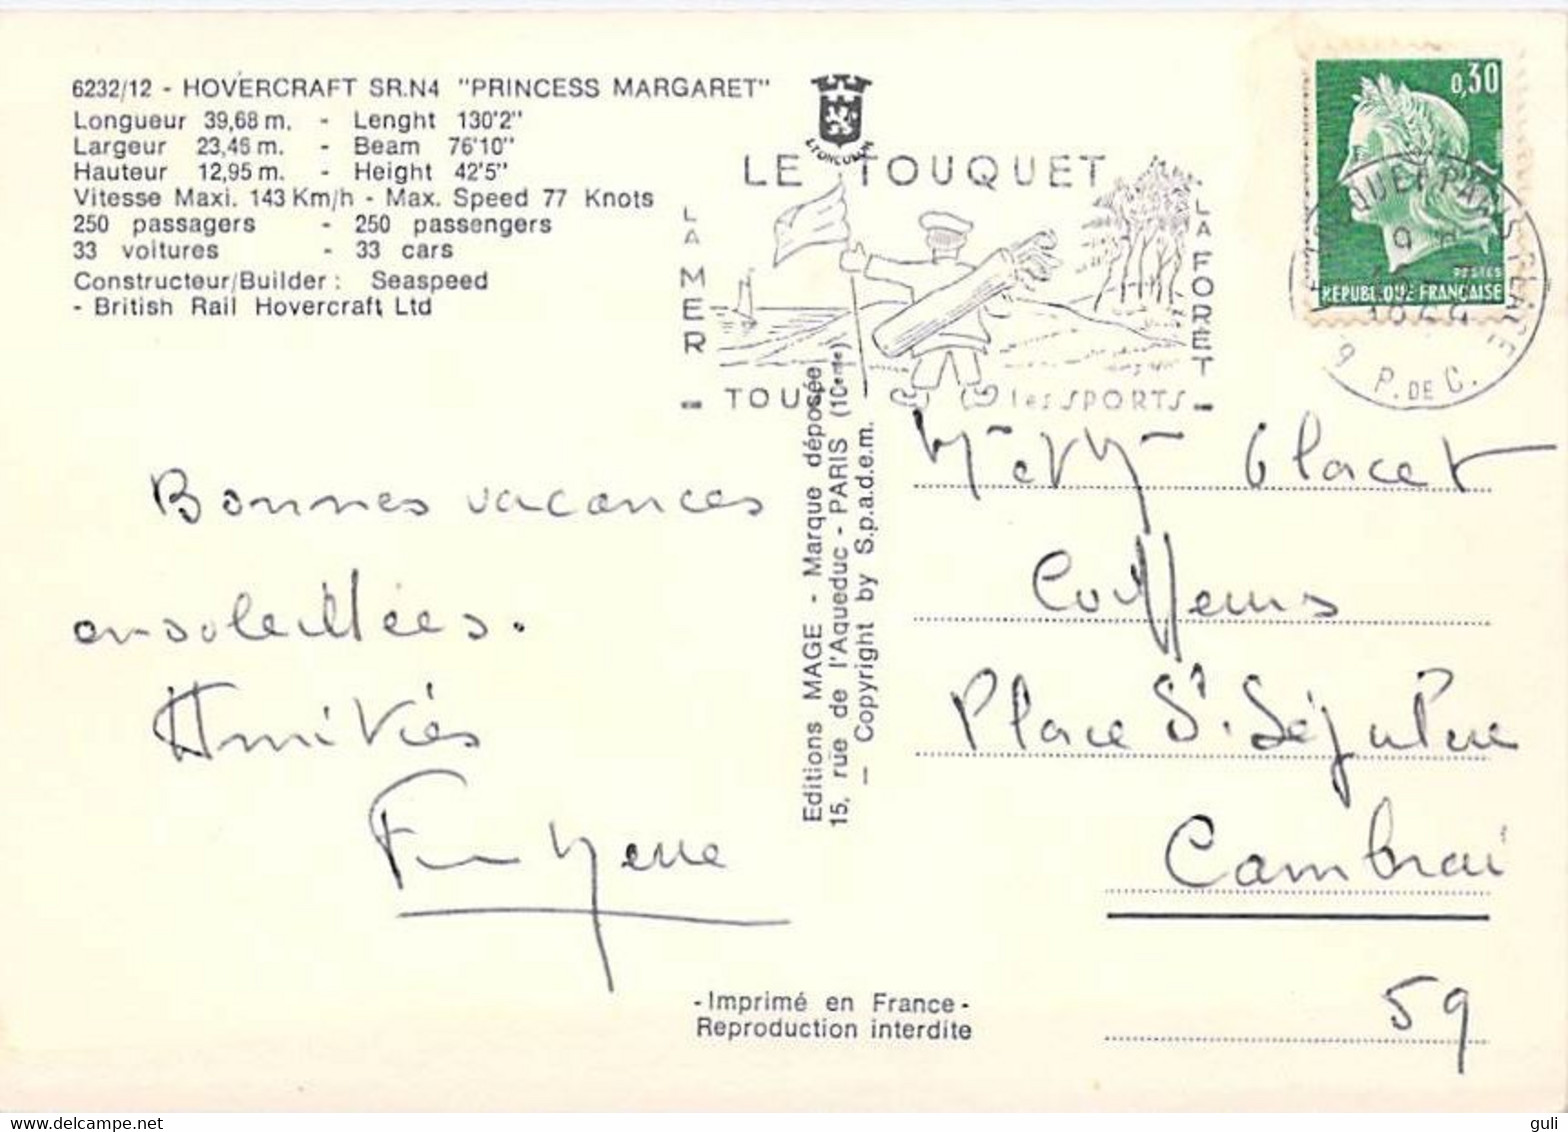 6232/12 - HOVERCRAFT SR.N4 "PRINCESS MARGARET"
Longueur 39,68 m. - Lenght 130'2"
Largeur 23,46 m. - Beam 76'10"
Hauteur 12,95 m. - Height 42'5"
Vitesse Maxi. 143 Km/h - Max. Speed 77 Knots
250 passagers - 250 passengers
33 voitures - 33 cars
Constructeur/Builder : Seaspeed
- British Rail Hovercraft Ltd
LE TOUQUET
LA MER
LA FORET
- TOUS les SPORTS -
0,30
POSTES
REPUBLIQUE FRANÇAISE
LE TOUQUET PARIS PLAGE
P. DE C.
1969
Bonnes vacances
ensoleillées.
Amitiés
Editions MAGE - Marque déposée
15, rue de l'Aqueduc - PARIS (10eme)
— Copyright by S.p.a.d.e.m.
M et M Glacet
Coiffeurs
Place St. Sépulcre
Cambrai
59
- Imprimé en France -
Reproduction interdite
guli